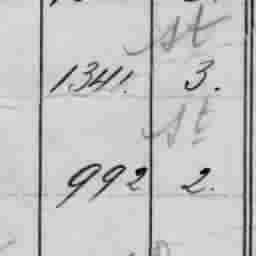 st
1341. 3.
st
992 2.